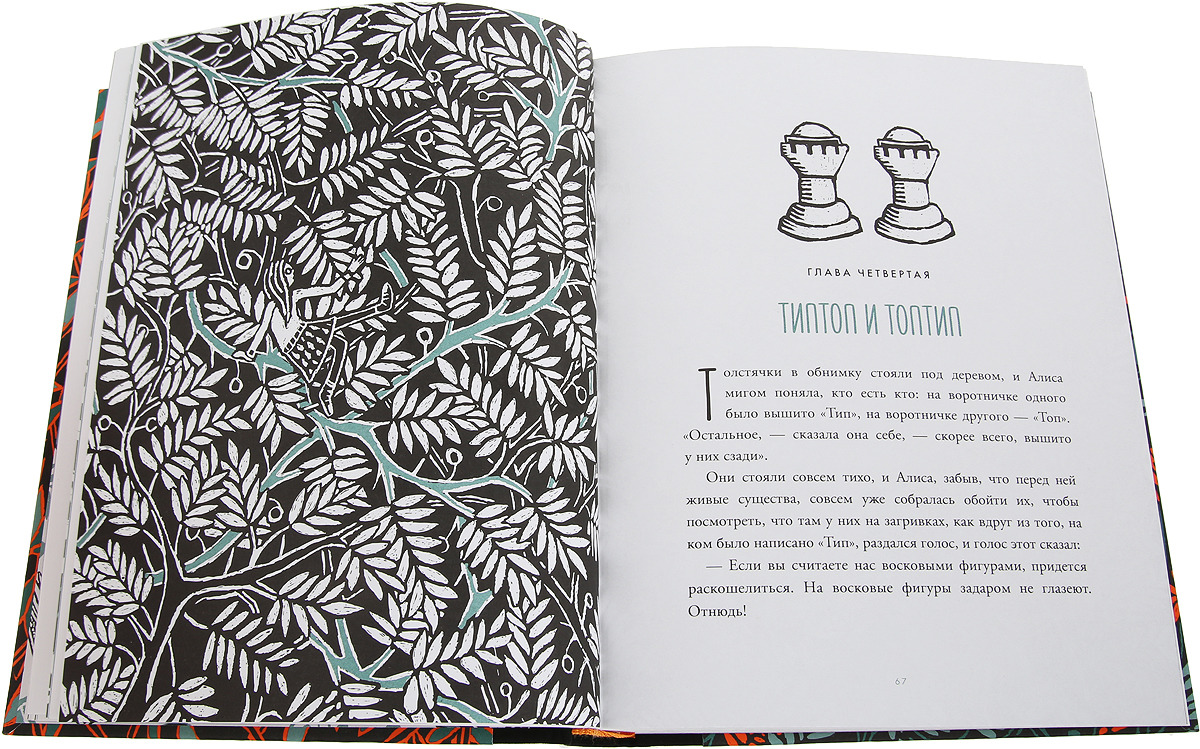 ГЛАВА ЧЕТВЕРТАЯ
ТИПТОП И ТОПТИП
Толстячки в обнимку стояли под деревом, и Алиса
мигом поняла, кто есть кто: на воротничке одного
было вышито «Тип», на воротничке другого — «Топ».
«Остальное, — сказала она себе, — скорее всего, вышито
у них сзади».
Они стояли совсем тихо, и Алиса, забыв, что перед ней
живые существа, совсем уже собралась обойти их, чтобы
посмотреть, что там у них на загривках, как вдруг из того, на
ком было написано «Тип», раздался голос, и голос этот сказал:
— Если вы считаете нас восковыми фигурами, придется
раскошелиться. На восковые фигуры задаром не глазеют.
Отнюдь!
67